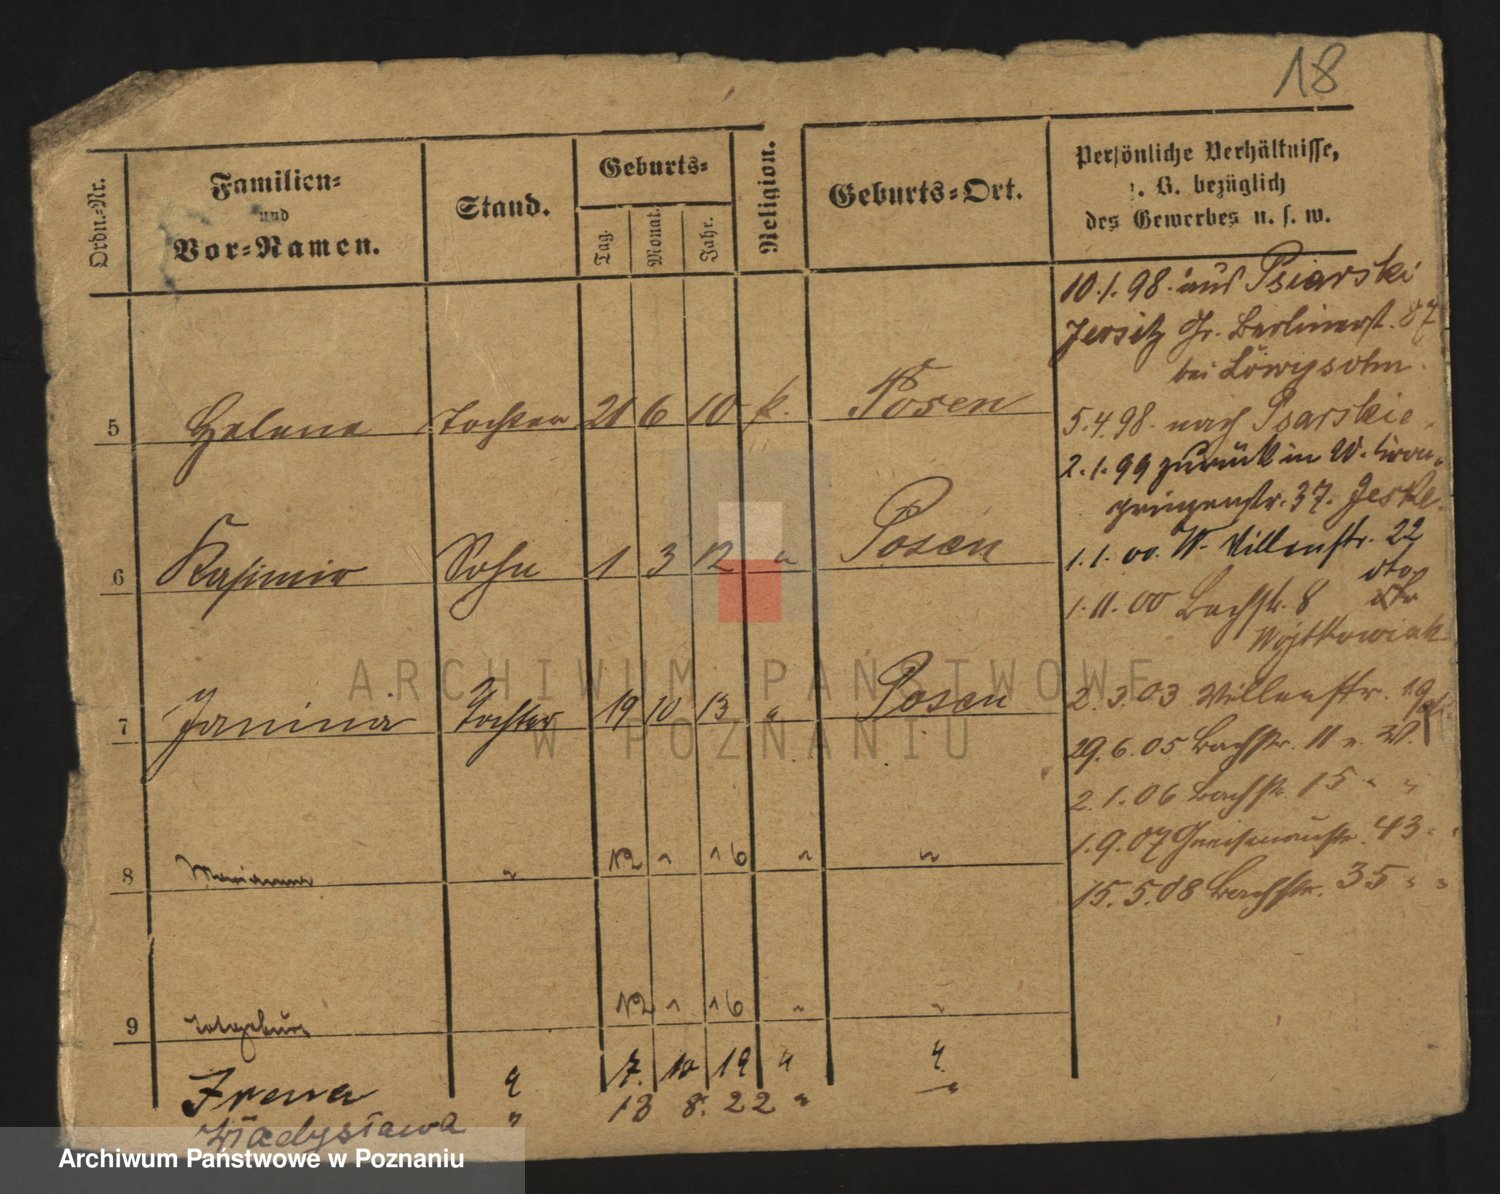 18
Ordn.-Nr.
Familien-
und
Vor-Namen.
Stand.
Geburts-
Tag.
Monat.
Jahr.
Religion.
Geburts-Ort.
Persönliche Verhältnisse,
z. B. bezüglich
des Gewerbes u. s. w.
10.1.98. aus Psiarski
Jersitz Gr. Berlinerst. 87
bei Löwysohn.
5 Helene Tochter 21 6 10 k. Posen
5.4.98. nach Psarskie.
2.1.99 zurück in W. Kron-
prinzenstr. 37. Jeske.
6 Kasimir Sohn 1 3 12 " Posen
1.1.00. W. Villenstr. 22
1.11.00 Bachstr. 8
Wojtkowiak
7 Janina Tochter 19 10 13 " Posen
2.3.03 Villenstr. 19
29.6.05 Bachstr. 11 W.
2.1.06 Bachstr. 15 " "
1.9.07 Gneisenaustr. 43 " "
15.5.08 Bachstr. 35 " "
8 Marianna " 12 1 16 " "
9 Totgeburt 12 1 16 " "
Irena " 7. 10 19 " "
Władysława " 13 8. 22 " "
ARCHIWUM PAŃSTWOWE
W POZNANIU
Archiwum Państwowe w Poznaniu